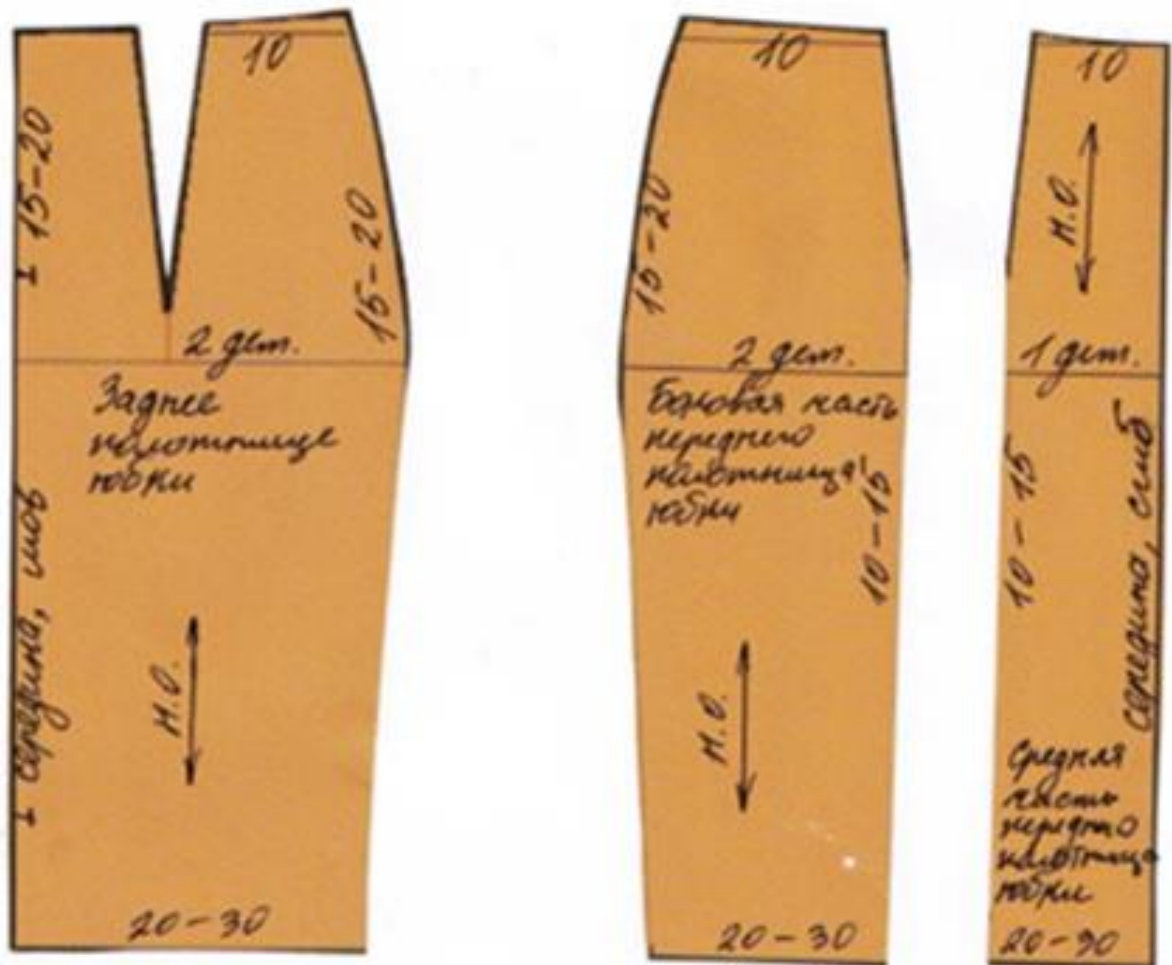 10
15-20
15-20
2 дет.
Заднее
полотнище
юбки
середина, шов
Н.О.
20-30
10
15-20
2 дет.
Боковая часть
переднего
полотнища
юбки
10-15
Н.О.
20-30
10
Н.О.
1 дет.
10-15
середина, сгиб
Средняя
часть
передн
полотнища
юбки
20-30